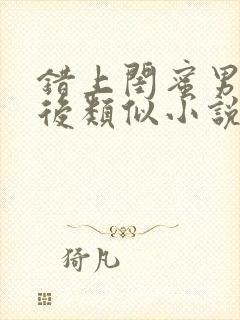 錯上閏蜜男
後類似小説
猗凡